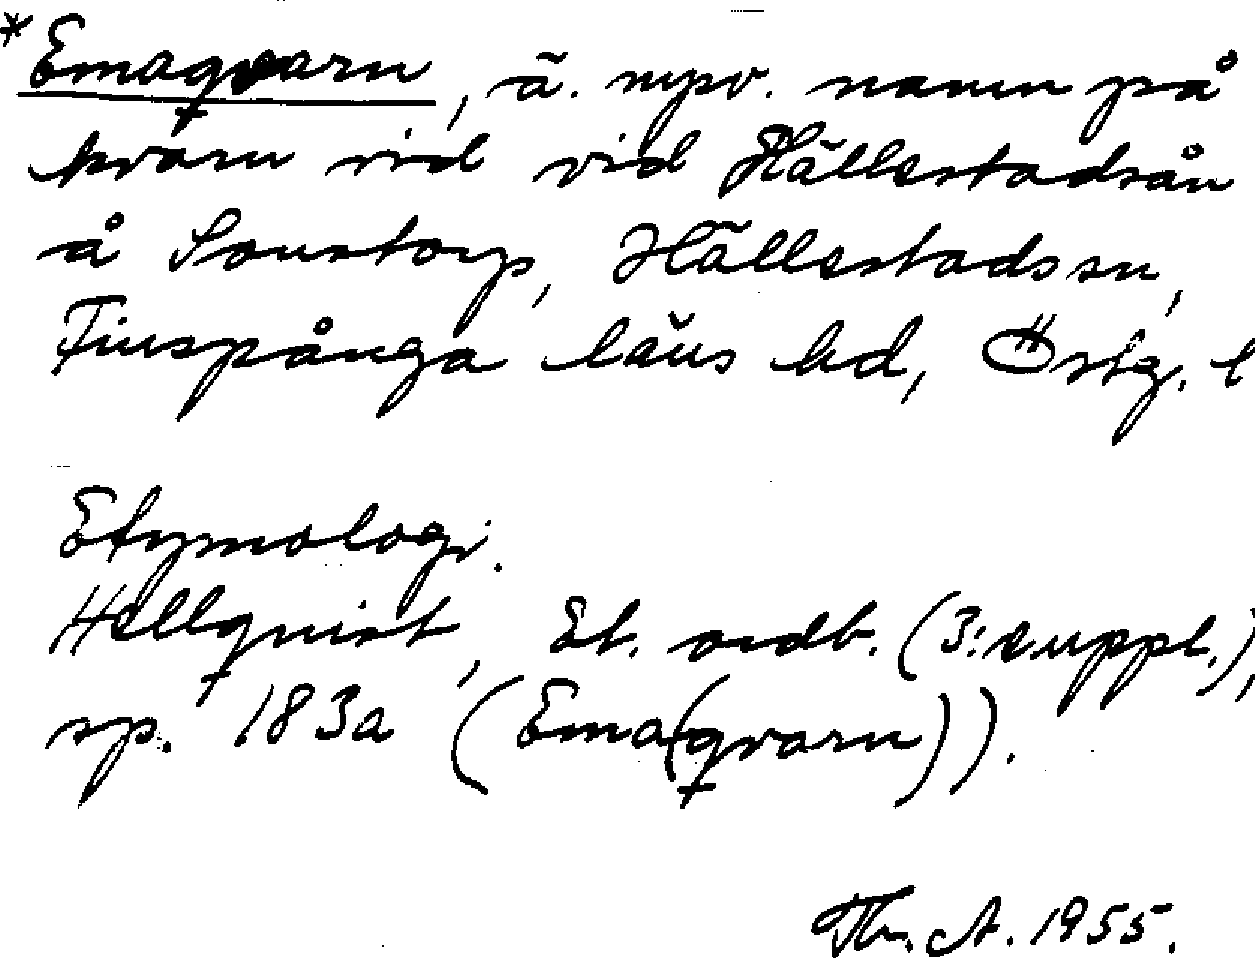 *Emaqvarn, ä. mpv. namn på
kvarn vid vid Hällestadsån
å Sonstorp, Hällestads sn,
Finspånga läns hd, Östg. l
Etymologi.
Hellquist, Et. ordb. (3: e uppl.),
sp. 183a (Ema(qvarn)).
Th. A. 1955.